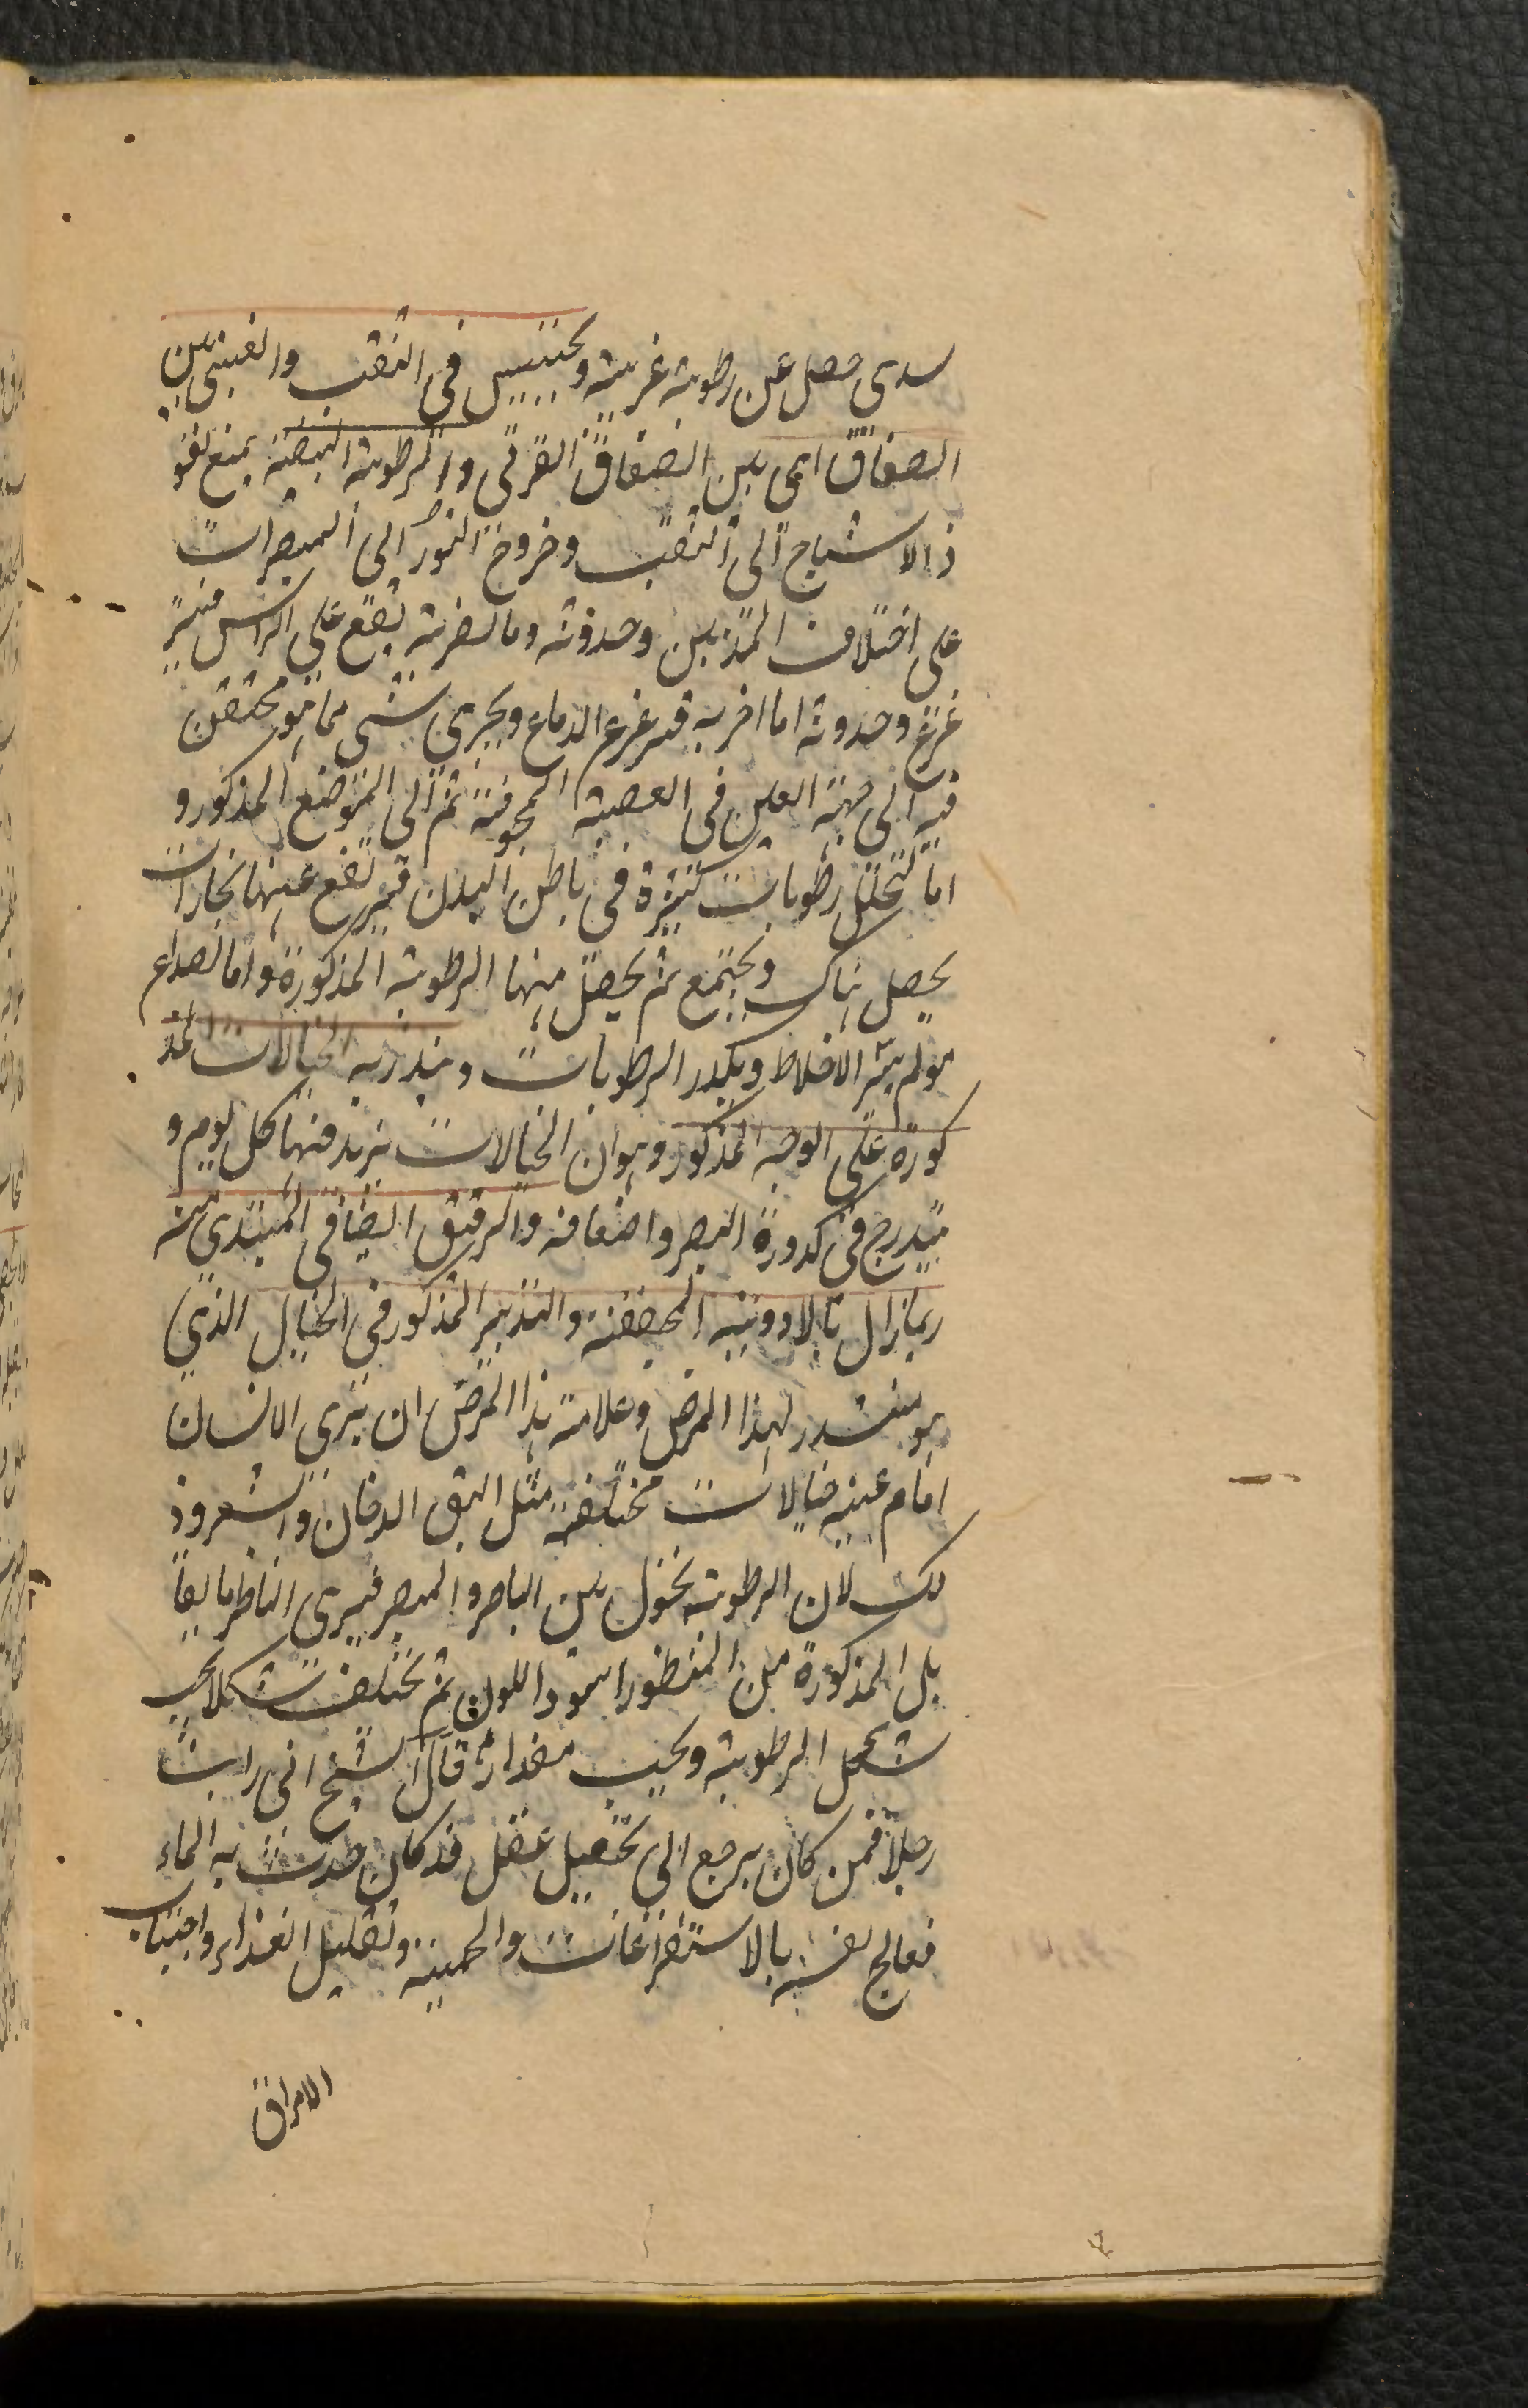 سدى حصل عن رطوبة غريبة ويحتبس فى الثقب والغبنى بين
الصفاق اى بين الصفاق القرنى والرطوبة البيضية يمنع نفو
ذ الاشباح الى الثقب وخروج النور الى المبصرات
على اختلاف المذهبين وحدوثه وما لضربة يقع على الراس فيتز
عزع وحدوثه اما اخربه فيزعزع الدماغ ويجرى شى مما هو محتقن
فيه الى جهة العين فى العصبة المجوفة ثم الى الموضع المذكور و
اما لتخلل رطوبات كثيرة فى باطن البدن فيرتفع عنها بخارات
يحصل هناك ويجتمع ثم يحصل منها الرطوبة المذكورة واما لصداع
مولم يثير الاخلاط ويكدر الرطوبات وينذر به الخيالات المذ
كورة على الوجه المذكور وهو ان الخيالات يزيد فيها كل يوم و
يتدرج فى كدورة البصر واضعافه والرقيق الصافى المبتدى منه
ربما زال بالادوية المجففة والتدبير المذكور فى الخيال الذى
هو منذر لهذا المرض وعلامة هذا المرض ان يرى الانسان
امام عينيه خيالات مختلفة مثل البق الدخان والشعر وذ
لك لان الرطوبة تحول بين الباصر والمبصر فيرى الناظر ما يقا
بل المذكورة من المنظور اسود اللون ثم تختلف شكلا بحسب
شكل الرطوبة وبحسب مقداره قال الشيخ انى رايت
رجلا فمن كان يرجع الى تحصيل عقل قد كان حدث به الماء
فعالج نفسه بالاستفراغات والحمية وتقليل الغذاء واجتناب
الامراق